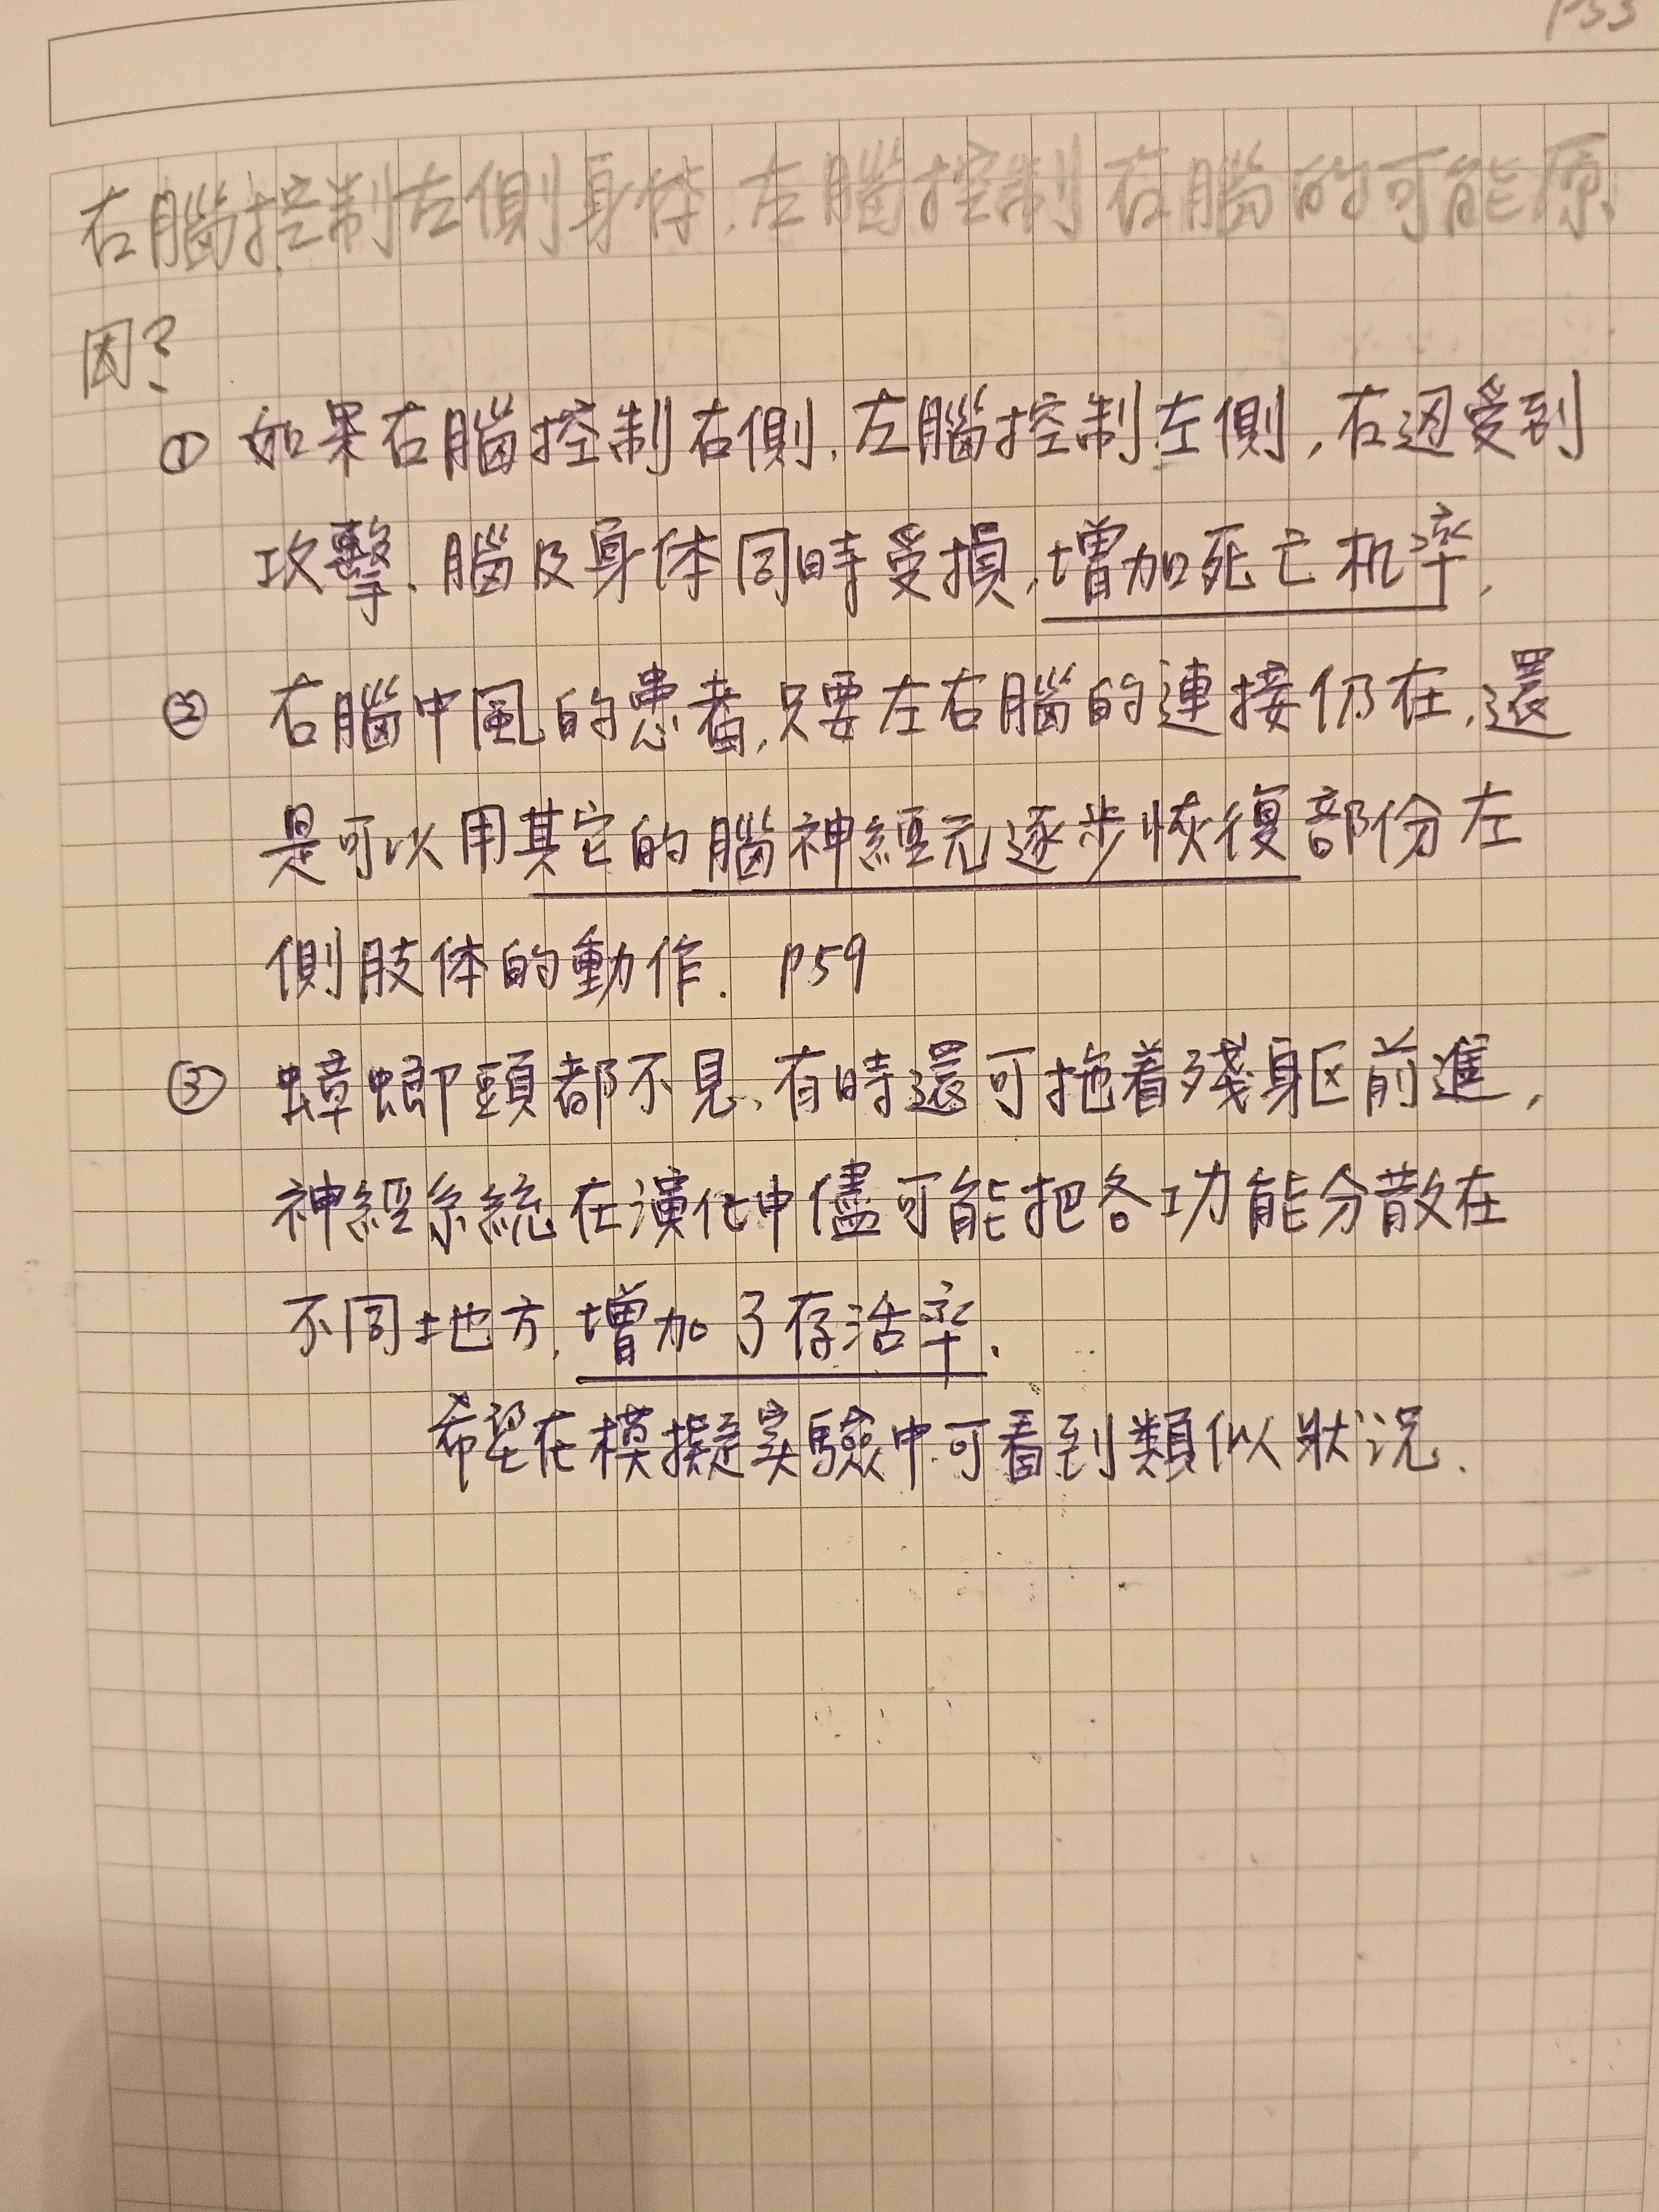 P55
右腦控制左側身体.左腦控制右腦的可能原
因?
① 如果右腦控制右側.左腦控制左側,右边受到
攻擊.腦及身体同時受損,增加死亡机率,
② 右腦中風的患者,只要左右腦的連接仍在,還
是可以用其它的腦神經元逐步恢復部份左
側肢体的動作. P59
③ 蟑螂頭都不見,有時還可拖着殘身区前進,
神經系統在演化中儘可能把各功能分散在
不同地方,增加了存活率.
希望在模擬實驗中可看到類似狀況.